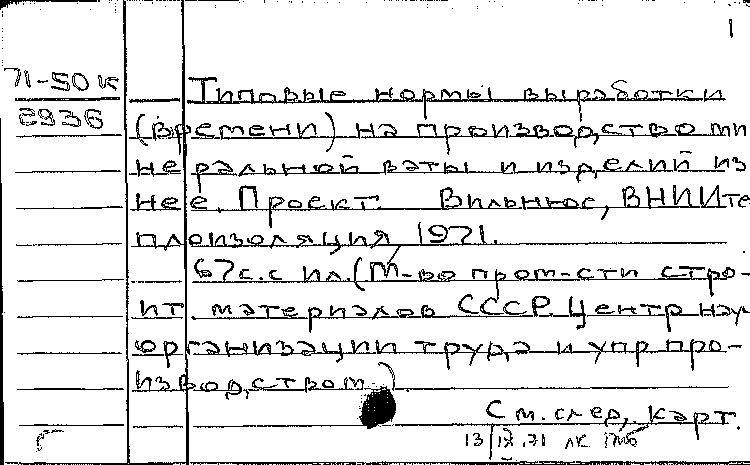 1
71-50к
2936
Типовые нормы выработки
(времени) на производство ми
неральной ваты и изделий из
нее. Проект. Вильнюс, ВНИИте
плоизоляция, 1971.
67с. с ил. (М-во пром-сти стро-
ит. материалов СССР. Центр науч
организации труда и упр про-
изводством)
См. след. карт.
13/IX.71 лк